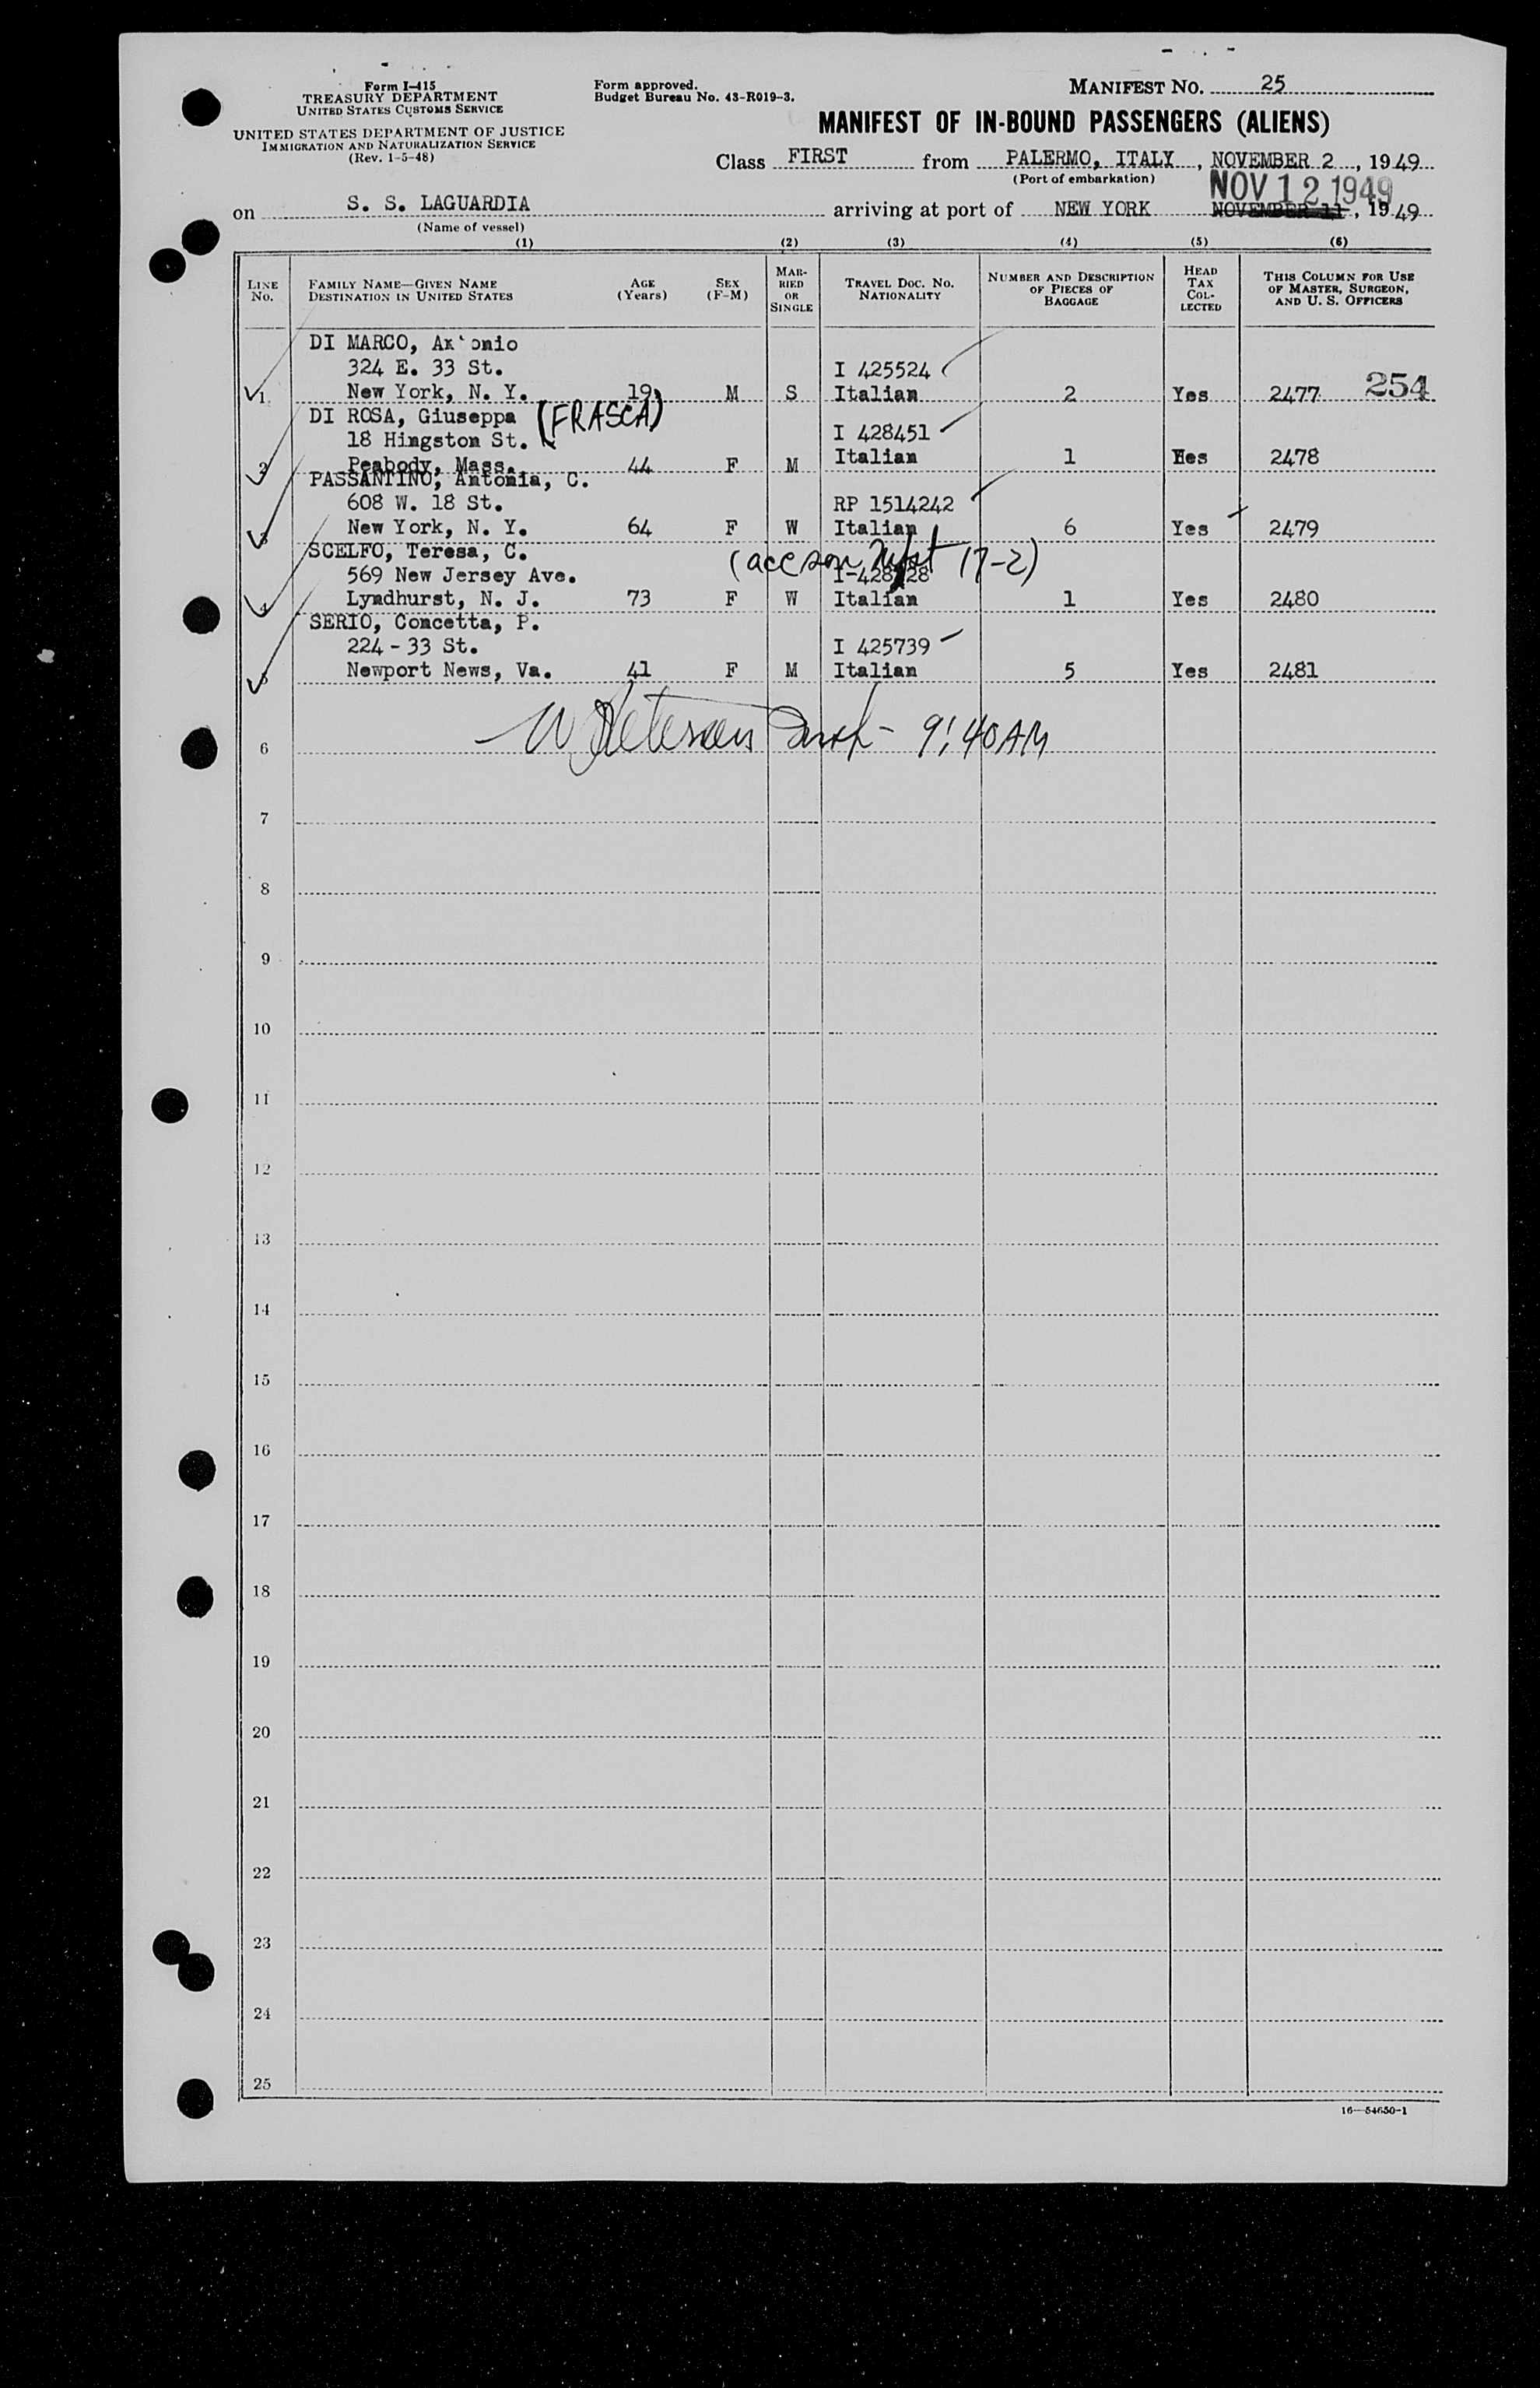 Form I-415
TREASURY DEPARTMENT
UNITED STATES CUSTOMS SERVICE
UNITED STATES DEPARTMENT OF JUSTICE
IMMIGRATION AND NATURALIZATION SERVICE
(Rev. 1-5-48)
Form approved.
Budget Bureau No. 43-R019-3.
MANIFEST NO. 25
MANIFEST OF IN-BOUND PASSENGERS (ALIENS)
Class FIRST from PALERMO, ITALY, NOVEMBER 2, 1949
(Port of embarkation)
NOV 12 1949
on S. S. LAGUARDIA arriving at port of NEW YORK NOVEMBER 11, 1949
(Name of vessel)
(1) (2) (3) (4) (5) (6)
LINE No. FAMILY NAME—GIVEN NAME DESTINATION IN UNITED STATES AGE (Years) SEX (F-M) MARRIED OR SINGLE TRAVEL DOC. NO. NATIONALITY NUMBER AND DESCRIPTION OF PIECES OF BAGGAGE HEAD TAX COLLECTED THIS COLUMN FOR USE OF MASTER, SURGEON, AND U. S. OFFICERS
DI MARCO, Antonio
324 E. 33 St. I 425524
1 New York, N. Y. 19 M S Italian 2 Yes 2477 254
DI ROSA, Giuseppa (FRASCA)
18 Hingston St. I 428451
2 Peabody, Mass. 44 F M Italian 1 Yes 2478
PASSANTINO, Antonia, C.
608 W. 18 St. RP 1514242
3 New York, N. Y. 64 F W Italian 6 Yes 2479
SCELFO, Teresa, C. (acc son 17-2)
569 New Jersey Ave.
4 Lyndhurst, N. J. 73 F W Italian 1 Yes 2480
SERIO, Concetta, P.
224 - 33 St. I 425739
5 Newport News, Va. 41 F M Italian 5 Yes 2481
6 9:40 AM
7
8
9
10
11
12
13
14
15
16
17
18
19
20
21
22
23
24
25
16—54650-1